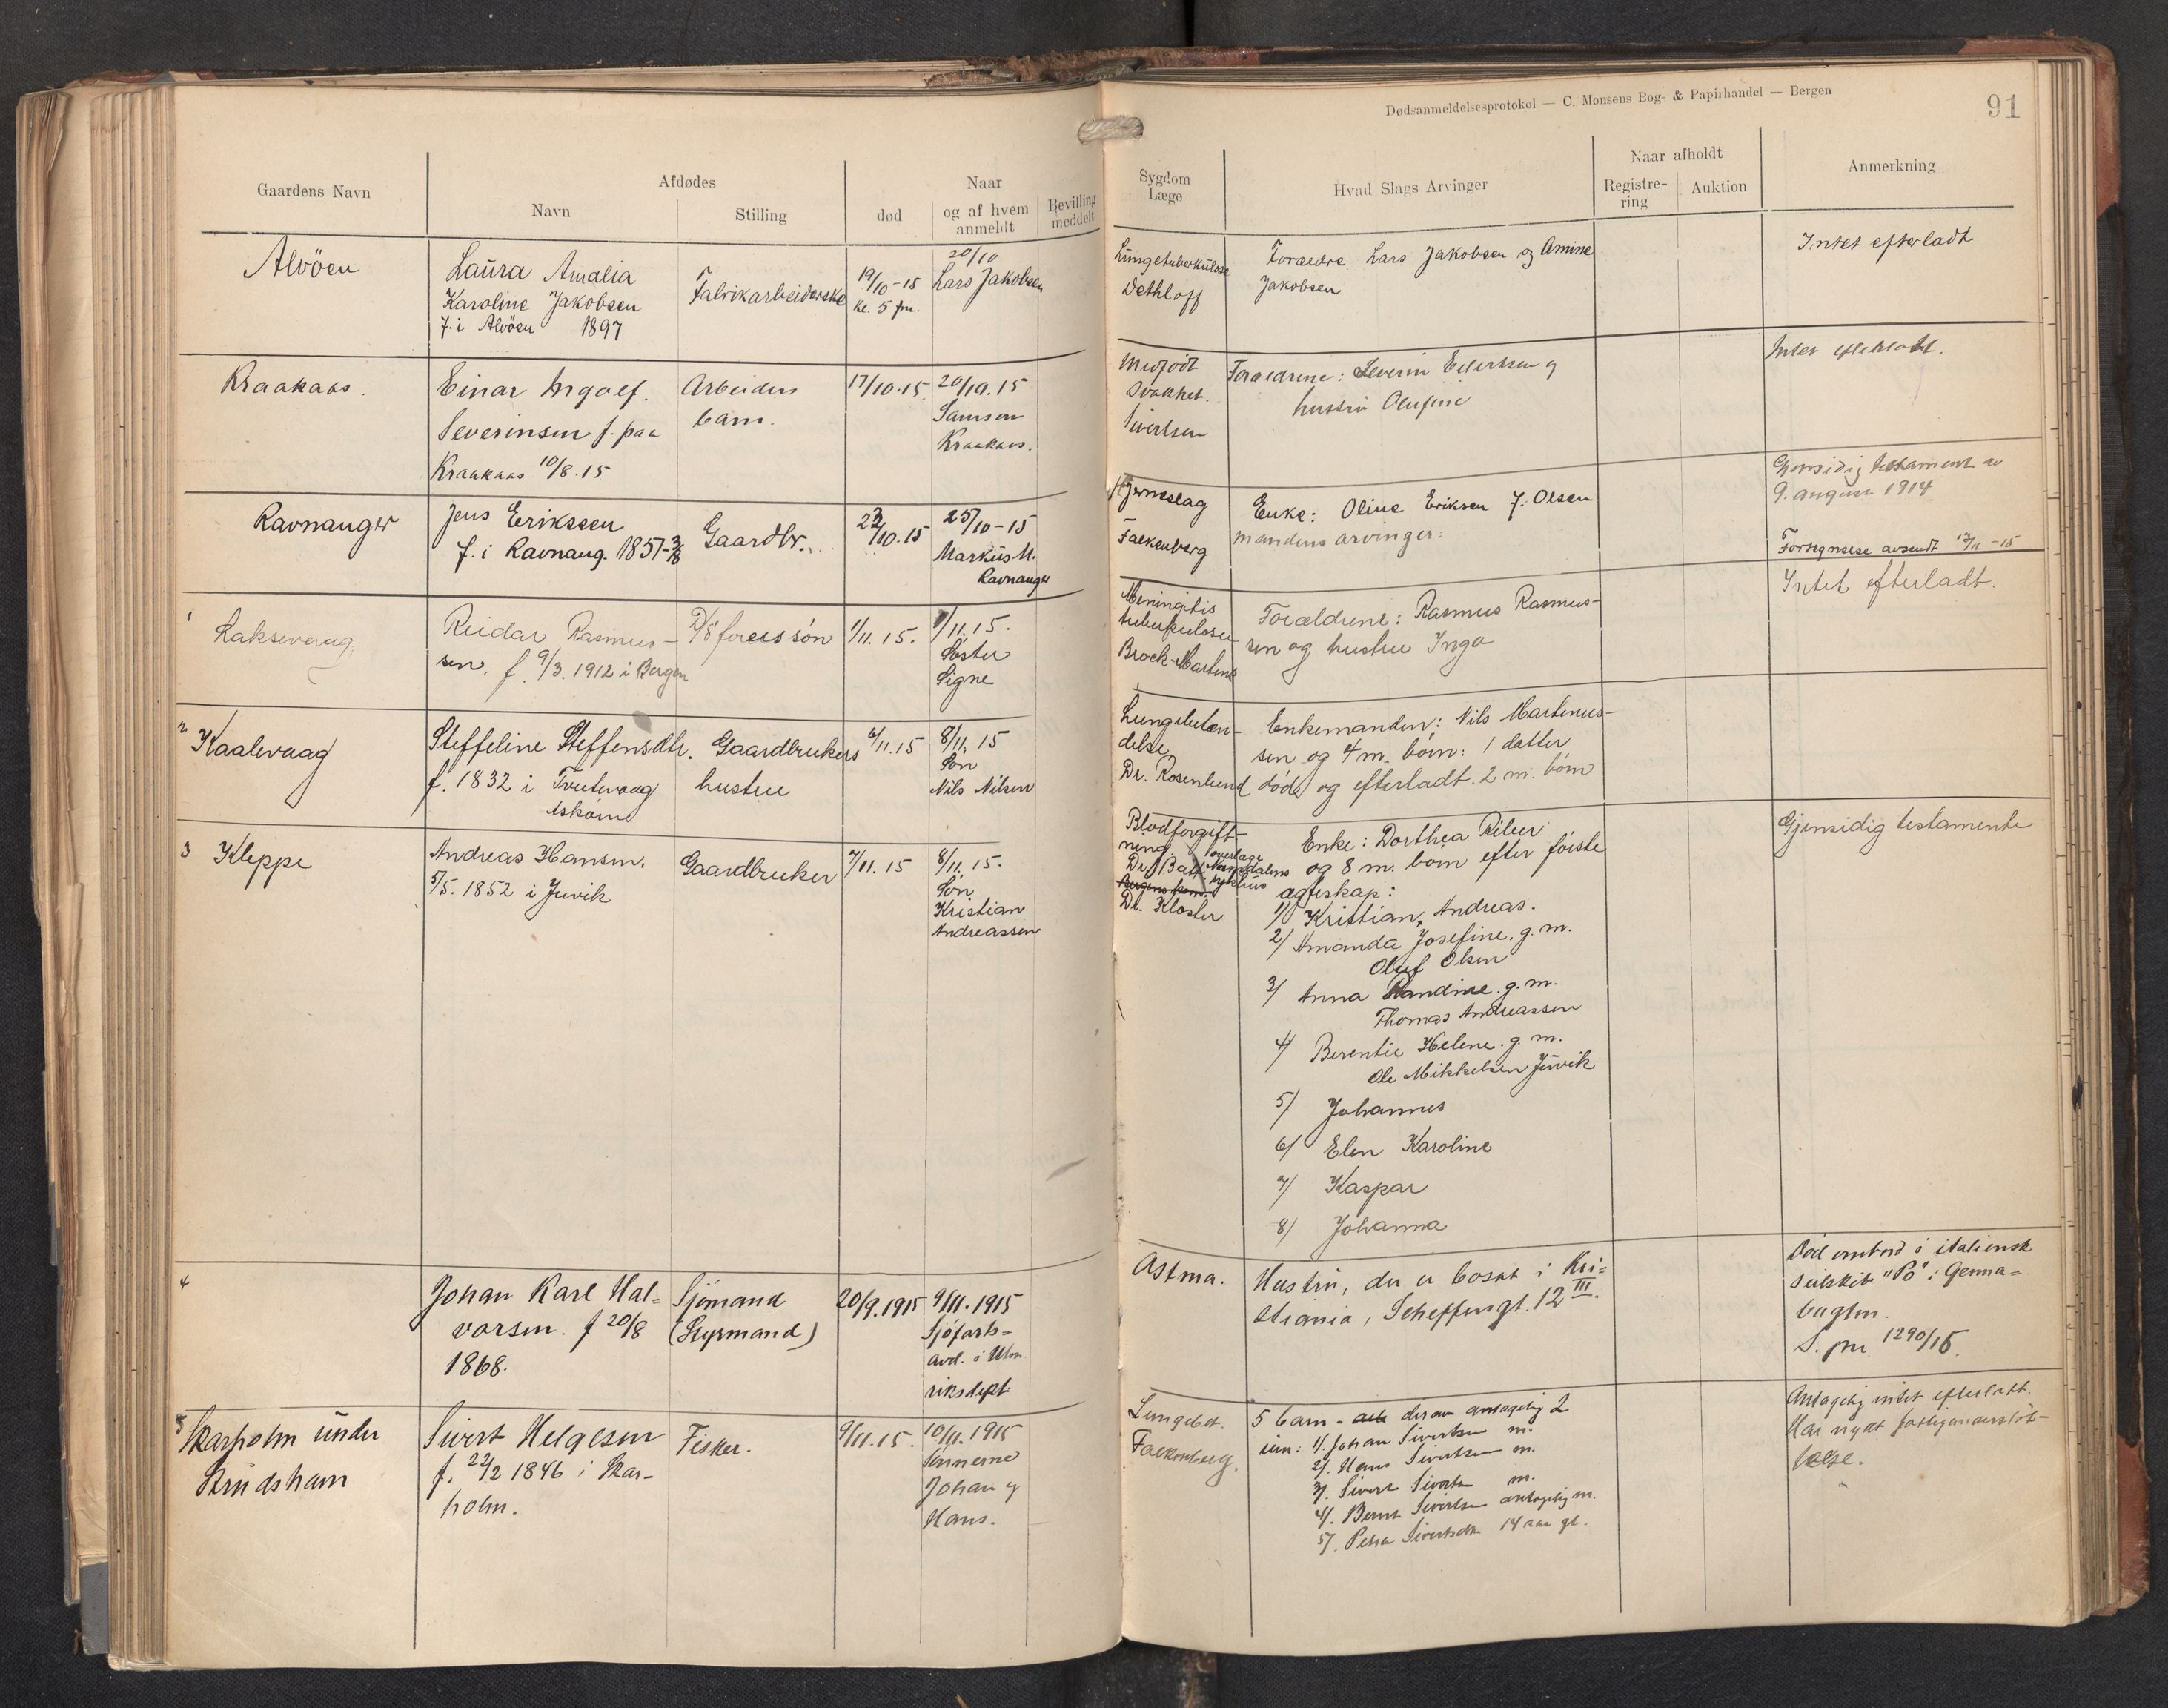 Dødsanmeldelsesprotokol — C. Monsens Bog- & Papirhandel — Bergen
91
Gaardens Navn
Afdødes
Navn
Stilling
død
Naar
og af hvem
anmeldt
Bevilling
meddelt
Sygdom
Læge
Hvad Slags Arvinger
Naar afholdt
Registre-
ring
Auktion
Anmerkning
Alvöen
Laura Amalia
Karoline Jakobsen
f. i Alvöen 1897
Fabrikarbeiderske
19/10-15
kl. 5 fm.
20/10
Lars Jakobsen
Lungetuberkulose
Dethloff
Forældre Lars Jakobsen og Amine
Jakobsen
Intet efterladt
Kraakaas.
Einar Ingolf.
Severinsen f. paa
Kraakaas 10/8.15
Arbeiders
barn.
17/10.15
20/10.15
Samson
Kraakaas.
Medfødt
svakhet.
Sivertsen
Forældrene: Severin Eilertsen og
hustru Olufine
Intet efterladt.
Ravnanger
Jens Erikssen
f. i Ravnang. 1857-
Gaardbr.
23/10.15
25/10-15
Markus M.
Ravnanger
Hjerneslag
Falkenberg
Enke: Oline Eriksen f. Olsen
mandens arvinger:
Gjensidig testament av
9. august 1914
Fortegnelse avsendt 12/11-15
1
Laksevaag
Reidar Rasmus-
sen, f. 9/3.1912 i Bergen
D/S föreres sön
1/11.15.
1/11.15.
Søster
Signe
Meningitis
tuberkulosa
Brock-Martens
Forældrene: Rasmus Rasmus-
sen og hustru Inga
Intet efterladt.
2
Kaalevaag
Steffeline Steffensdtr.
f. 1832 i Tveitevaag
Askøen
Gaardbrukers
hustru
6/11.15
8/11.15
Søn
Nils Nilsen
Lungebeten-
delse
Dr. Rosenlund
Enkemanden: Nils Martinus-
sen og 4 m. børn: 1 datter
død og efterladt 2 m. børn
3
Kleppe
Andreas Hansen.
5/5. 1852 i Juvik
Gaardbruker
7/11.15
8/11.15.
Søn
Kristian
Andreassen
Blodforgift-
ning
overlæge
Dr.
Dr. Kloster
Enke: Dorthea
og 8 m. børn efter første
egteskap:
1/ Kristian Andreas.
2/ Amanda Josefine. g.m.
Oluf Olsen
3/ Anna Randine. g.m.
Thomas Andreassen
4/ Berentie Helene. g.m.
Ole Mikkelsen Juvik
5/ Johannes
6/ Elen Karoline
7/ Kaspar
8/ Johanna
Gjensidig testamente
4
Johan Karl Hal-
vorsen. f 20/8
1868.
Sjömand
(Styrmand)
20/9.1915
9/11.1915
Sjöfarts-
avd. i Uten
riksdept
Astma.
Hustru, der er bosat i Kri-
stiania, Scheffersgt. 12 III.
Död ombord i italiensk
seilskib "Po" i Genua-
bugten.
S. jnr. 1290/15.
5
Skarholm under
Strudshavn
Sivert Helgesen
f. 22/2 1846 i Skar-
holm.
Fisker.
9/11.15.
10/11.1915
Sønnerne
Johan og
Hans.
Lungebet.
Falkenberg.
5 barn - derav antagelig 2
um: 1/. Johan Sivertsen m.
2/. Hans Sivertsen m.
3/. Sivert Sivertsen m.
4/. Bernt Sivertsen antagelig m.
5/. Petra Sivertsdtr. 14 aar gl.
Antagelig intet efterlatt.
Har nydt fattigunderstöt-
telse.